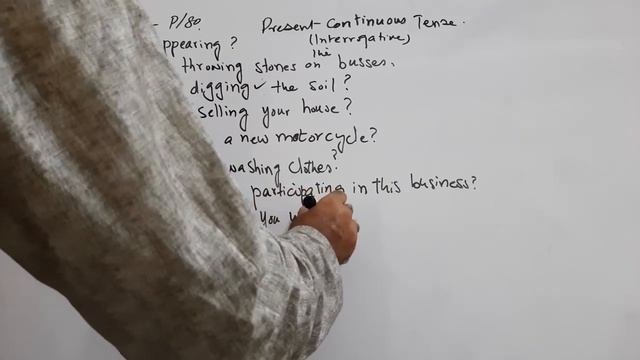 - P/80. Present-Continuous Tense.
(Interrogative)
ppearing?
throwing stones on the busses.
digging the soil?
selling your house?
a new motorcycle?
washing clothes?
participating in this business?
You